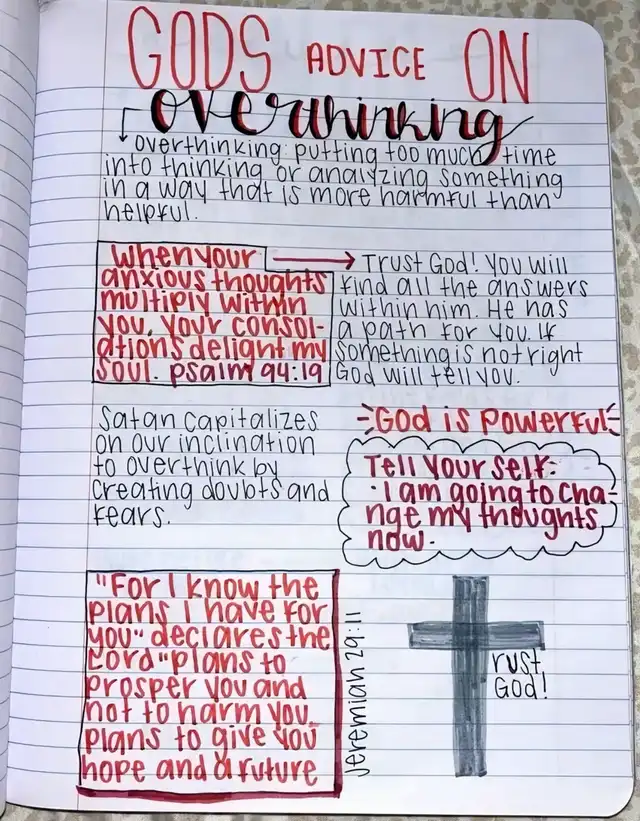 GODS ADVICE ON
overthinking
overthinking: putting too much time
into thinking or analyzing something
in a way that is more harmful than
helpful.
When your
anxious thoughts
multiply within
you, your consol-
ations delight my
soul. psalm 94:19
Trust God! You will
find all the answers
within him. He has
a path for you. If
something is not right
God will tell you.
Satan capitalizes
on our inclination
to overthink by
creating doubts and
fears.
God is powerful
Tell your self:
· I am going to cha-
nge my thoughts
now.
"For I know the
plans I have for
you" declares the
Lord "plans to
prosper you and
not to harm you.
plans to give you
hope and a future
Jeremiah 29:11
rust
God!